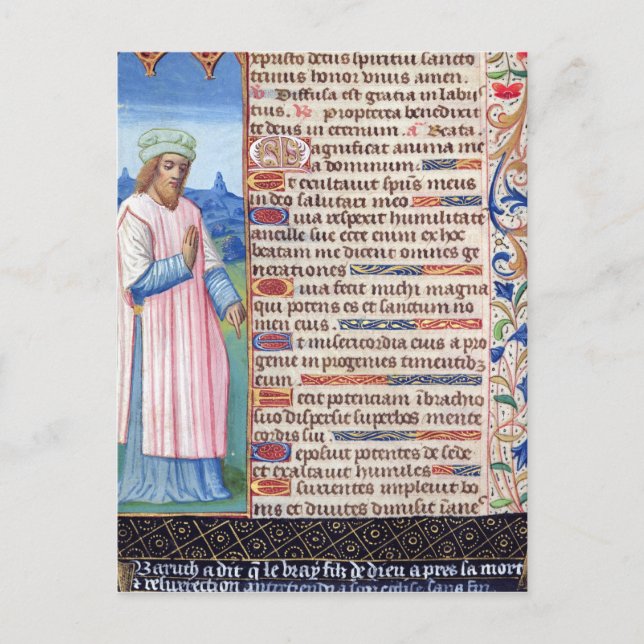 xpristo detus spiritui sancto
trinus honor unus amen.
V Diffusa est gratia in labijs
tuis. R Propterea benedixit
te deus in eternum. a Beata
Magnificat anima me
a dominum.
Et exultavit spūs meus
in deo salutari meo.
Quia respexit humilitatē
ancille sue ecce enim ex hoc
beatam me dicent omnes ge
nerationes
Quia fecit michi magna
qui potens es et sanctum no
men eius.
Et misericordia eius a pro
genie in progenies timentibꝫ
eum.
Fecit potenciam ībrachio
suo dispersit superbos mente
cordis sui.
Deposuit potentes de sede
et exaltavit humiles
Esurientes implevit bo
nis et divites dimisit īanes
Baruch a dit q̄ le vray filz de dieu apres sa mort
& resurrection a son eglise sans fin